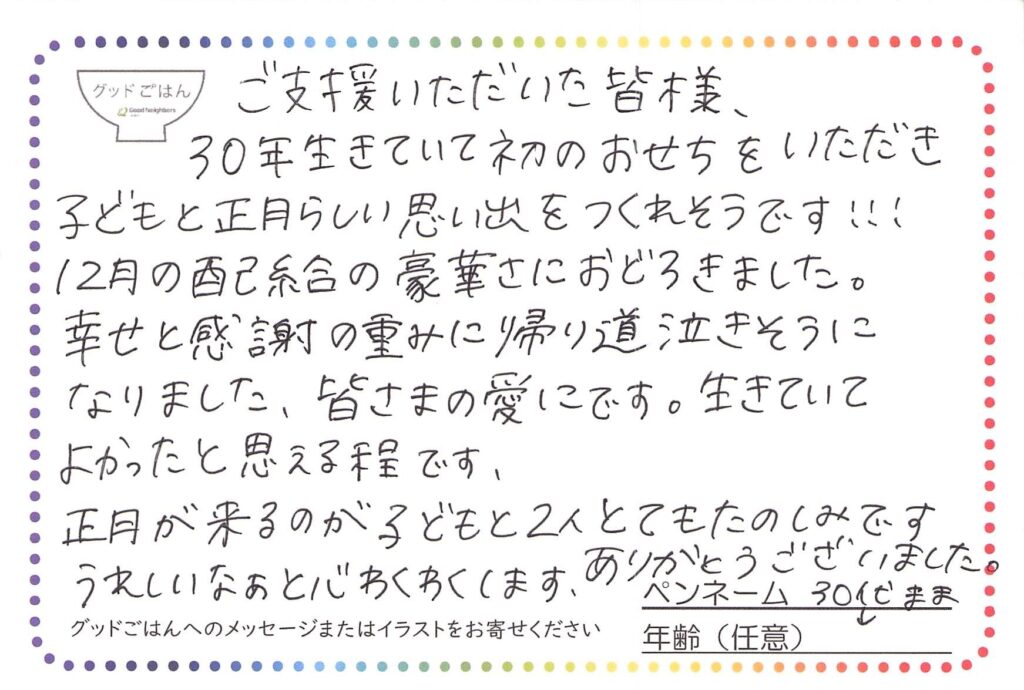 グッド ごはん
Good Neighbors
ご支援いただいた皆様、
30年生きていて初のおせちをいただき
子どもと正月らしい思い出をつくれそうです!!!
12月の配給合の豪華さにおどろきました。
幸せと感謝の重みに帰り道泣きそうに
なりました、皆さまの愛にです。生きていて
よかったと思える程です、
正月が来るのが子どもと2人とてもたのしみです
うれしいなぁと心わくわくします、ありがとうございました。
ペンネーム 30代まま
グッドごはんへのメッセージまたはイラストをお寄せください
年齢(任意)